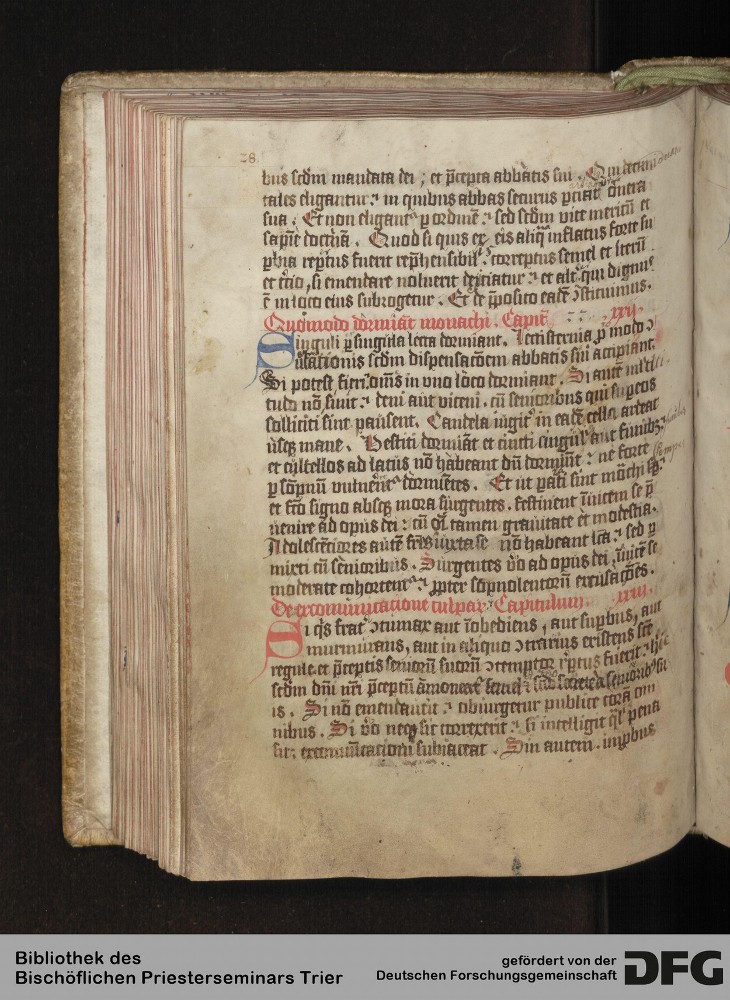 28.
bus scdm mandata dei ; et p̄cepta abbatis sui . Qui decani
tales eligantur : in quibus abbas securus p̄ciat onera
sua . Et non eligantᷣ p ordinē : sed scdm vite meritū et
sapīe doctrīā . Quod si quis ex eis aliq̄ inflatus forte su
pbia repertus fuerit rep̄hensibilˀ : correptus semel et iterū
et tcio , si emendare noluerit deiciatur : et altˀ qui dignus
ē in loco eius subrogetur . Et de p̄posito eadē ↄstituimus .
Quomodo dormiāt monachi . Capit̄ xxij
Singuli p singula lecta dormiant . Lectisternia p modo ↄ
uˀsationis scdm dispensacōem abbatis sui accipiant
Si potest fieri om̄s in vno loco dormiant . Si autē multi
tudo nō sinit : deni aut viceni . cū senioribus qui sup eos
solliciti sint pausent . Candela iugitˀ in eadē cella ardeat
usq mane . Vestiti dormiāt et cincti cingulˀ aut funibꝫ :
et cultellos ad latus nō habeant dū dormiūt : ne forte
p sōpnū vulnerētᷣ dormiētes . Et ut pati sint mōchi sp :
et fc̄o signo absq mora surgentes . festinent īuicem se p̄
uenire ad opus dei : cū oī tamen grauitate et modestia .
Adolescēciores autē frēs iuxta se nō habeant lc̄a : sed p
mixti cū senioribus . Surgentes vˀo ad opus dei , īuicē se
moderate cohortentᷣ : ppter sōpnolentorū excusacōes .
De excommunicatione culpar̄ . Capitulum . xxiij .
Si q̄s frat̄ ↄtumax aut īobediens , aut supbus , aut
murmurans , aut in aliquo ↄtrarius existens scē
regule et p̄ceptis seniorū suorū ↄtemptor rep̄tus fuerit : hic
scdm dn̄i nr̄i p̄ceptū āmoneatᷣ semel : et scdo secrete a seniorib9 su
is . Si nō emendauerit : obiurgetur publice corā om
nibus . Si vˀo neq sic correxerit : si intelligit q̄lˀ pena
sit : excommūicationi subiaceat . Sin autem . improbus
Bibliothek des
Bischöflichen Priesterseminars Trier
gefördert von der
Deutschen Forschungsgemeinschaft
DFG